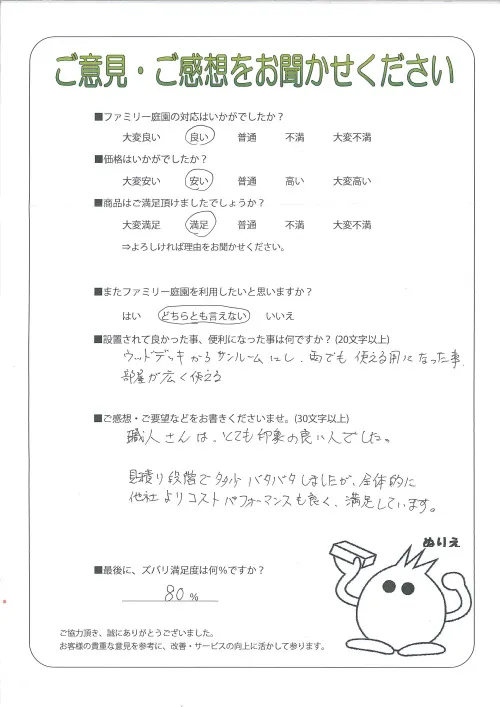 ご意見・ご感想をお聞かせください
■ファミリー庭園の対応はいかがでしたか?
大変良い 良い 普通 不満 大変不満
■価格はいかがでしたか?
大変安い 安い 普通 高い 大変高い
■商品はご満足頂けましたでしょうか?
大変満足 満足 普通 不満 大変不満
⇒よろしければ理由をお聞かせください。
■またファミリー庭園を利用したいと思いますか?
はい どちらとも言えない いいえ
■設置されて良かった事、便利になった事は何ですか? (20文字以上)
ウッドデッキからサンルームにし、雨でも使える用になった事。
部屋が広く使える
■ご感想・ご要望などをお書きくださいませ。(30文字以上)
職人さんは、とても印象の良い人でした。
見積り段階で バタバタしましたが、全体的に
他社よりコストパフォーマンスも良く、満足しています。
ぬりえ
■最後に、ズバリ満足度は何%ですか?
80 %
ご協力頂き、誠にありがとうございました。
お客様の貴重な意見を参考に、改善・サービスの向上に活かして参ります。